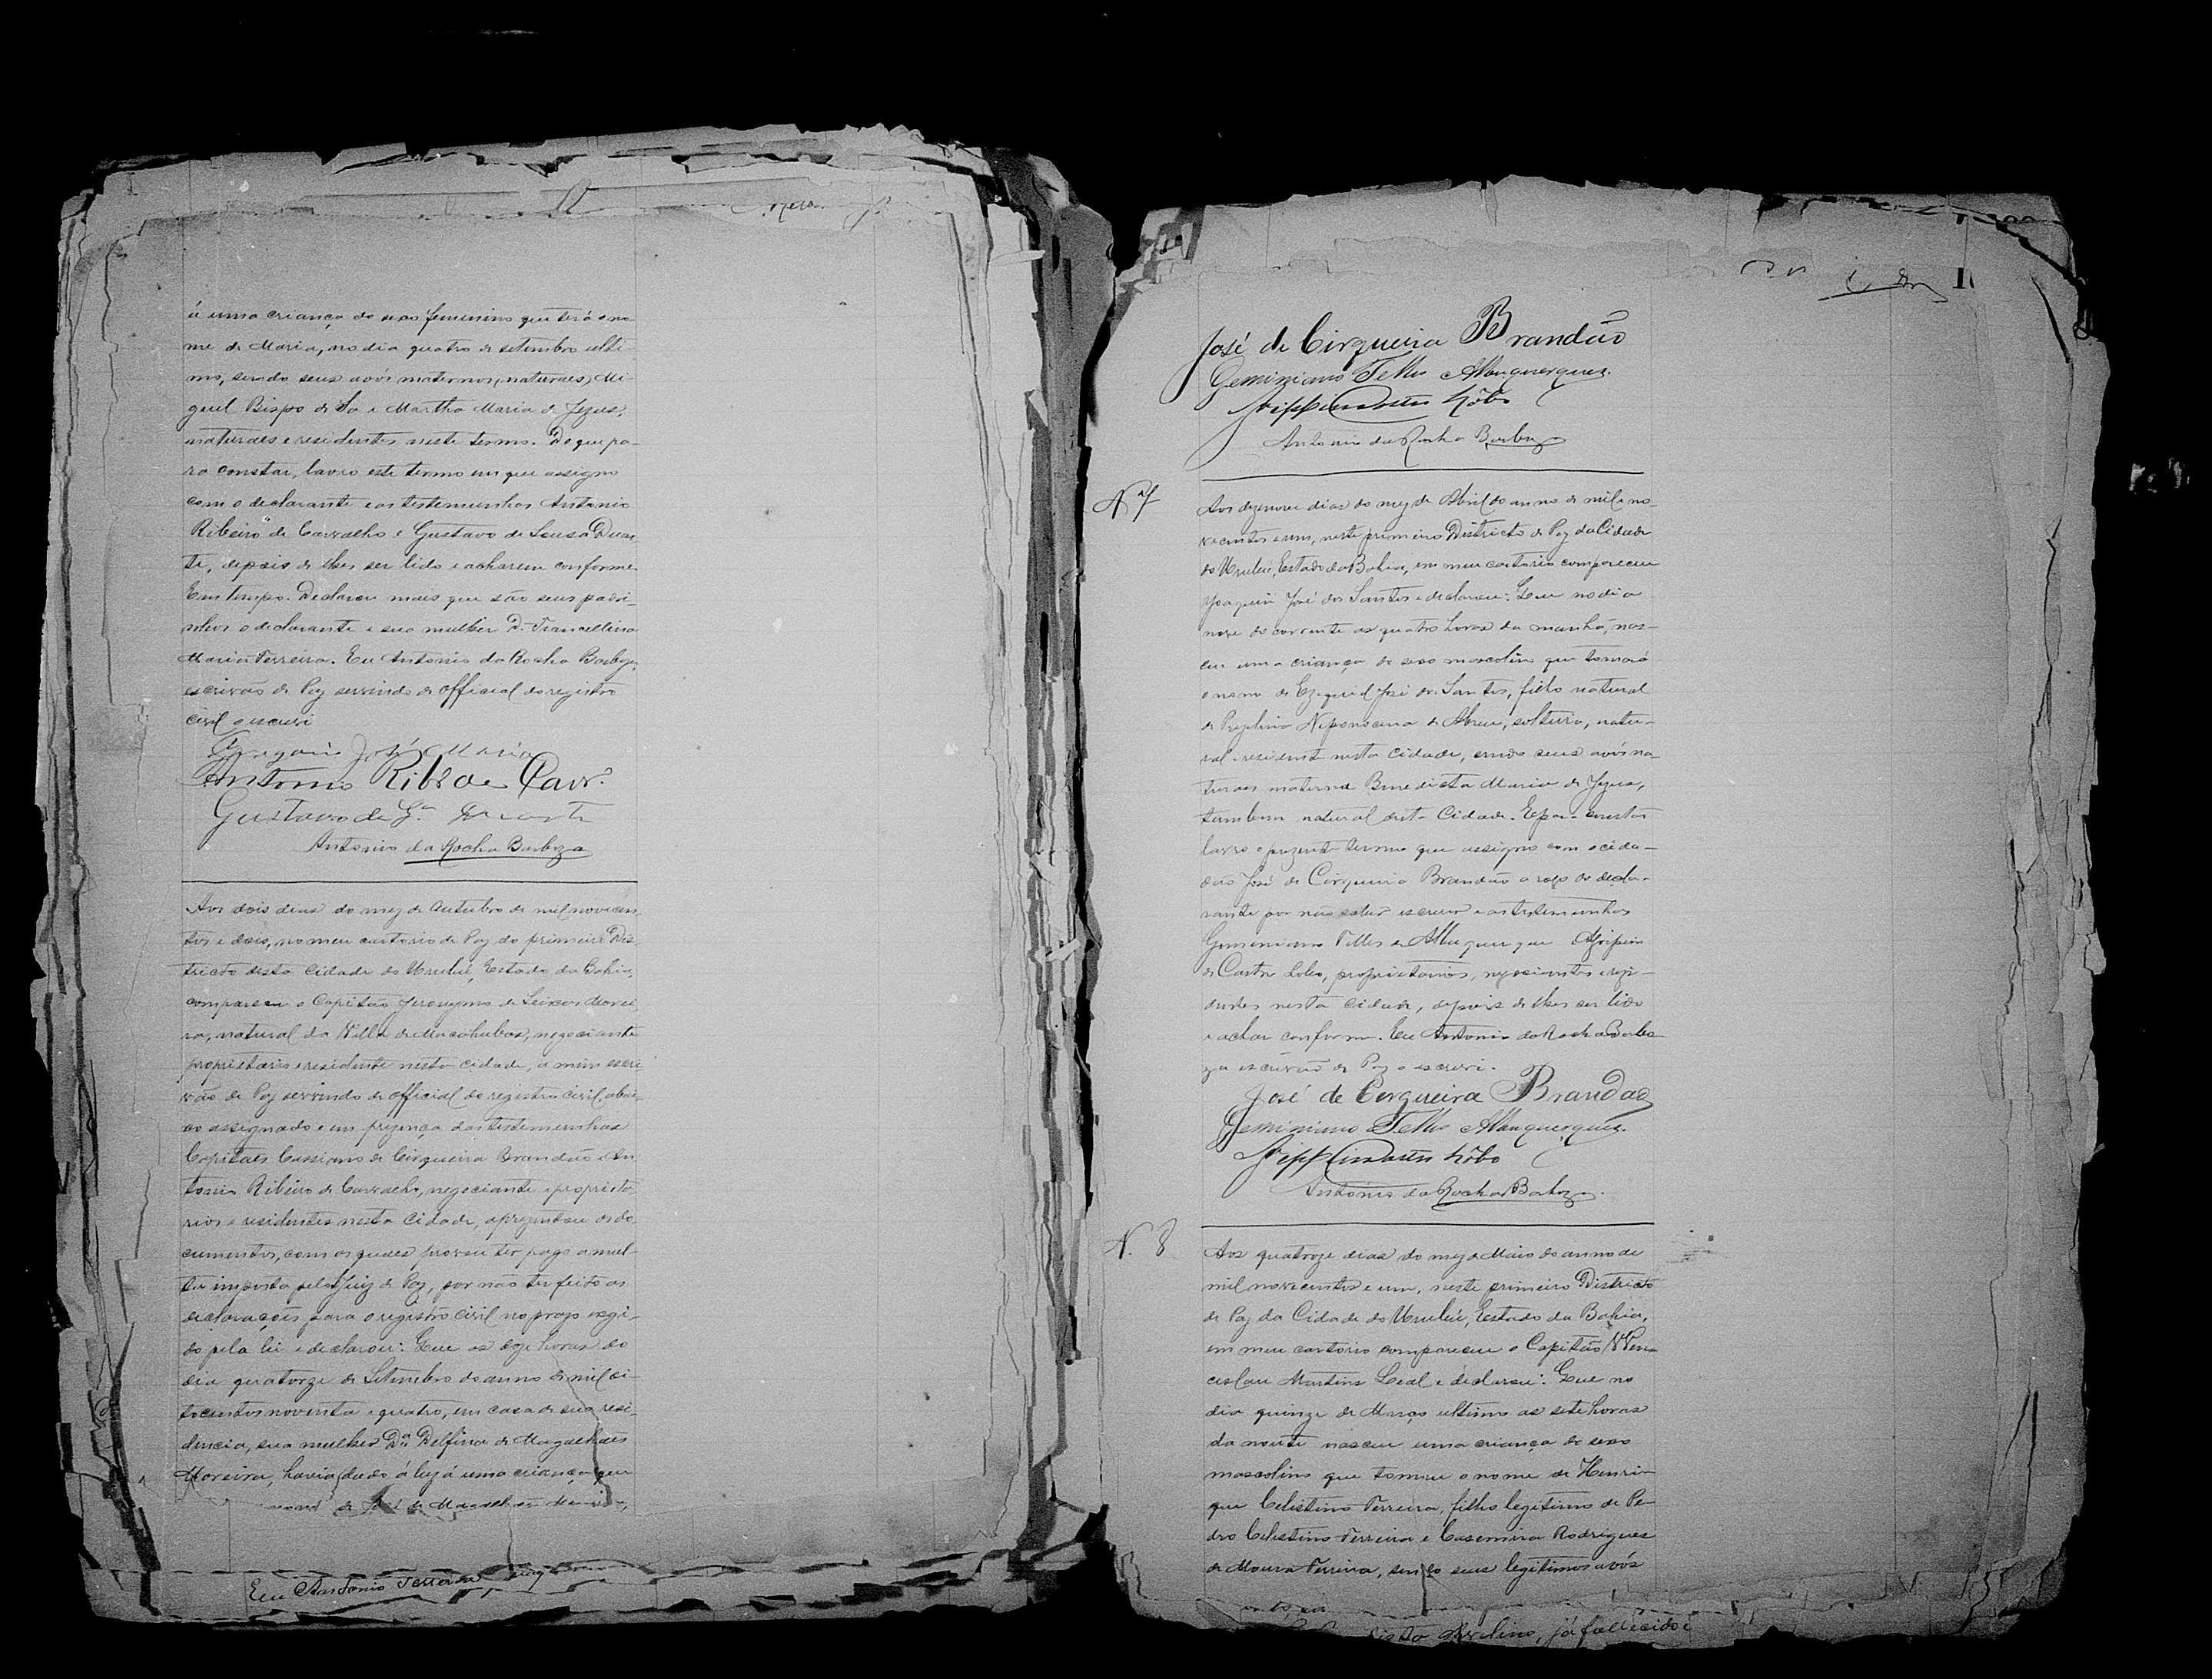 é uma criança do sexo feminino que terá o no-
me de Maria, no dia quatro de setembro ulti-
mo, sendo seus avós maternos, naturaes, Mi-
guel Bispo de Sa e Martha Maria de Jezus,
naturaes e residentes neste termo. Do que pa-
ra constar, lavro este termo em que assigno
com o declarante e as testemunhas Antonio
Ribeiro de Carvalho e Gustavo de Sousa Duar-
te, depois de lhes ser lido e acharem conforme.
Em tempo. Declarou mais que são seus padri-
nhos o declarante e sua mulher D. Francellina
Maria Ferreira. Eu Antonio da Rocha Barboza,
escrivão de Paz servindo de official do registro
civil o escrevi
José Maria
Antonio Ribro de Carv.º
Gustavo de Sª Duarte
Antonio da Rocha Barboza
Aos dois dias do mez de Outubro de mil novecen-
tos e dois, no meu cartorio de Paz do primeiro Dis-
tricto desta Cidade do Urubú, Estado da Bahia,
compareceu o Capitão Jeronymo de Seixas Morei-
ra, natural da Villa de Macahubas, negociante
proprietario e residente nesta cidade, a mim escri-
vão de Paz servindo de official do registro civil, abai-
xo assignado e em prezença das testemunhas
Capitães Cassiano de Cirqueira Brandão e An-
tonio Ribeiro de Carvalho, negociante e proprieta-
rios e residentes nesta Cidade, aprezentou os do-
cumentos, com os quaes provou ter pago a mul-
ta imposta pelo Juiz de Paz, por não ter feito as
declarações para o registro civil no prazo exegi-
do pela lei e declarou: Que as doze horas do
dia quatorze de Setembro do anno de mil oi-
tocentos noventa e quatro, em casa de sua resi-
dencia, sua mulher Dª Delfina de Magalhães
Moreira, havia dado á luz á uma criança que
de José de Magalhães
Eu Antonio Ferreira
José de Cirqueira Brandão
Geminiano Telles Albuquerque
Castro Lôbo
Antonio da Rocha Barboza
N 7
Aos dezenove dias do mez de Abril do anno de mil e no-
vecentos e um, neste primeiro Districto de Paz da Cidade
do Urubú, Estado da Bahia, em meu cartorio compareceu
Joaquim José dos Santos e declarou: Que no dia
nove do corrente as quatro horas da manhã, nas-
ceu uma criança do sexo mascolino que tomará
o nome de Ezequiel José dos Santos, filho natural
de Nepomocena de Abreu, solteira, natu-
ral e residente nesta Cidade, sendo seus avós na-
turaes materna Benedicta Maria de Jezus,
tambem natural desta Cidade. E para constar
lavro o prezente termo que assigno com o cida-
dão José de Cirqueira Brandão a rogo do decla-
rante por não saber escrever e as testemunhas
Geminiano Telles de Albuquerque Agripino
de Castro Lobo, proprietarios, negociantes e rezi-
dentes nesta Cidade, depois de lhes ser lido
e achar conforme. Eu Antonio da Rocha Barbo-
za escrivão de Paz o escrevi.
José de Cerqueira Brandão
Geminiano Telles Albuquerque
Castro Lôbo
Antonio da Rocha Barboza
N. 8
Aos quatroze dias do mez de Maio do anno de
mil novecentos e um, neste primeiro Districto
de Paz da Cidade do Urubú, Estado da Bahia,
em meu cartorio compareceu o Capitão Wen-
ceslau Martins Leal e declarou: Que no
dia quinze de Março ultimo as sete horas
da noute nasceu uma criança do sexo
mascolino que tomou o nome de Henri-
que Celistino Ferreira, filho legitimo de Pe-
dro Celestino Ferreira e Casemira Rodrigues
de Moura Ferreira, sendo seus legitimos avós
Avelino, já fallecido e